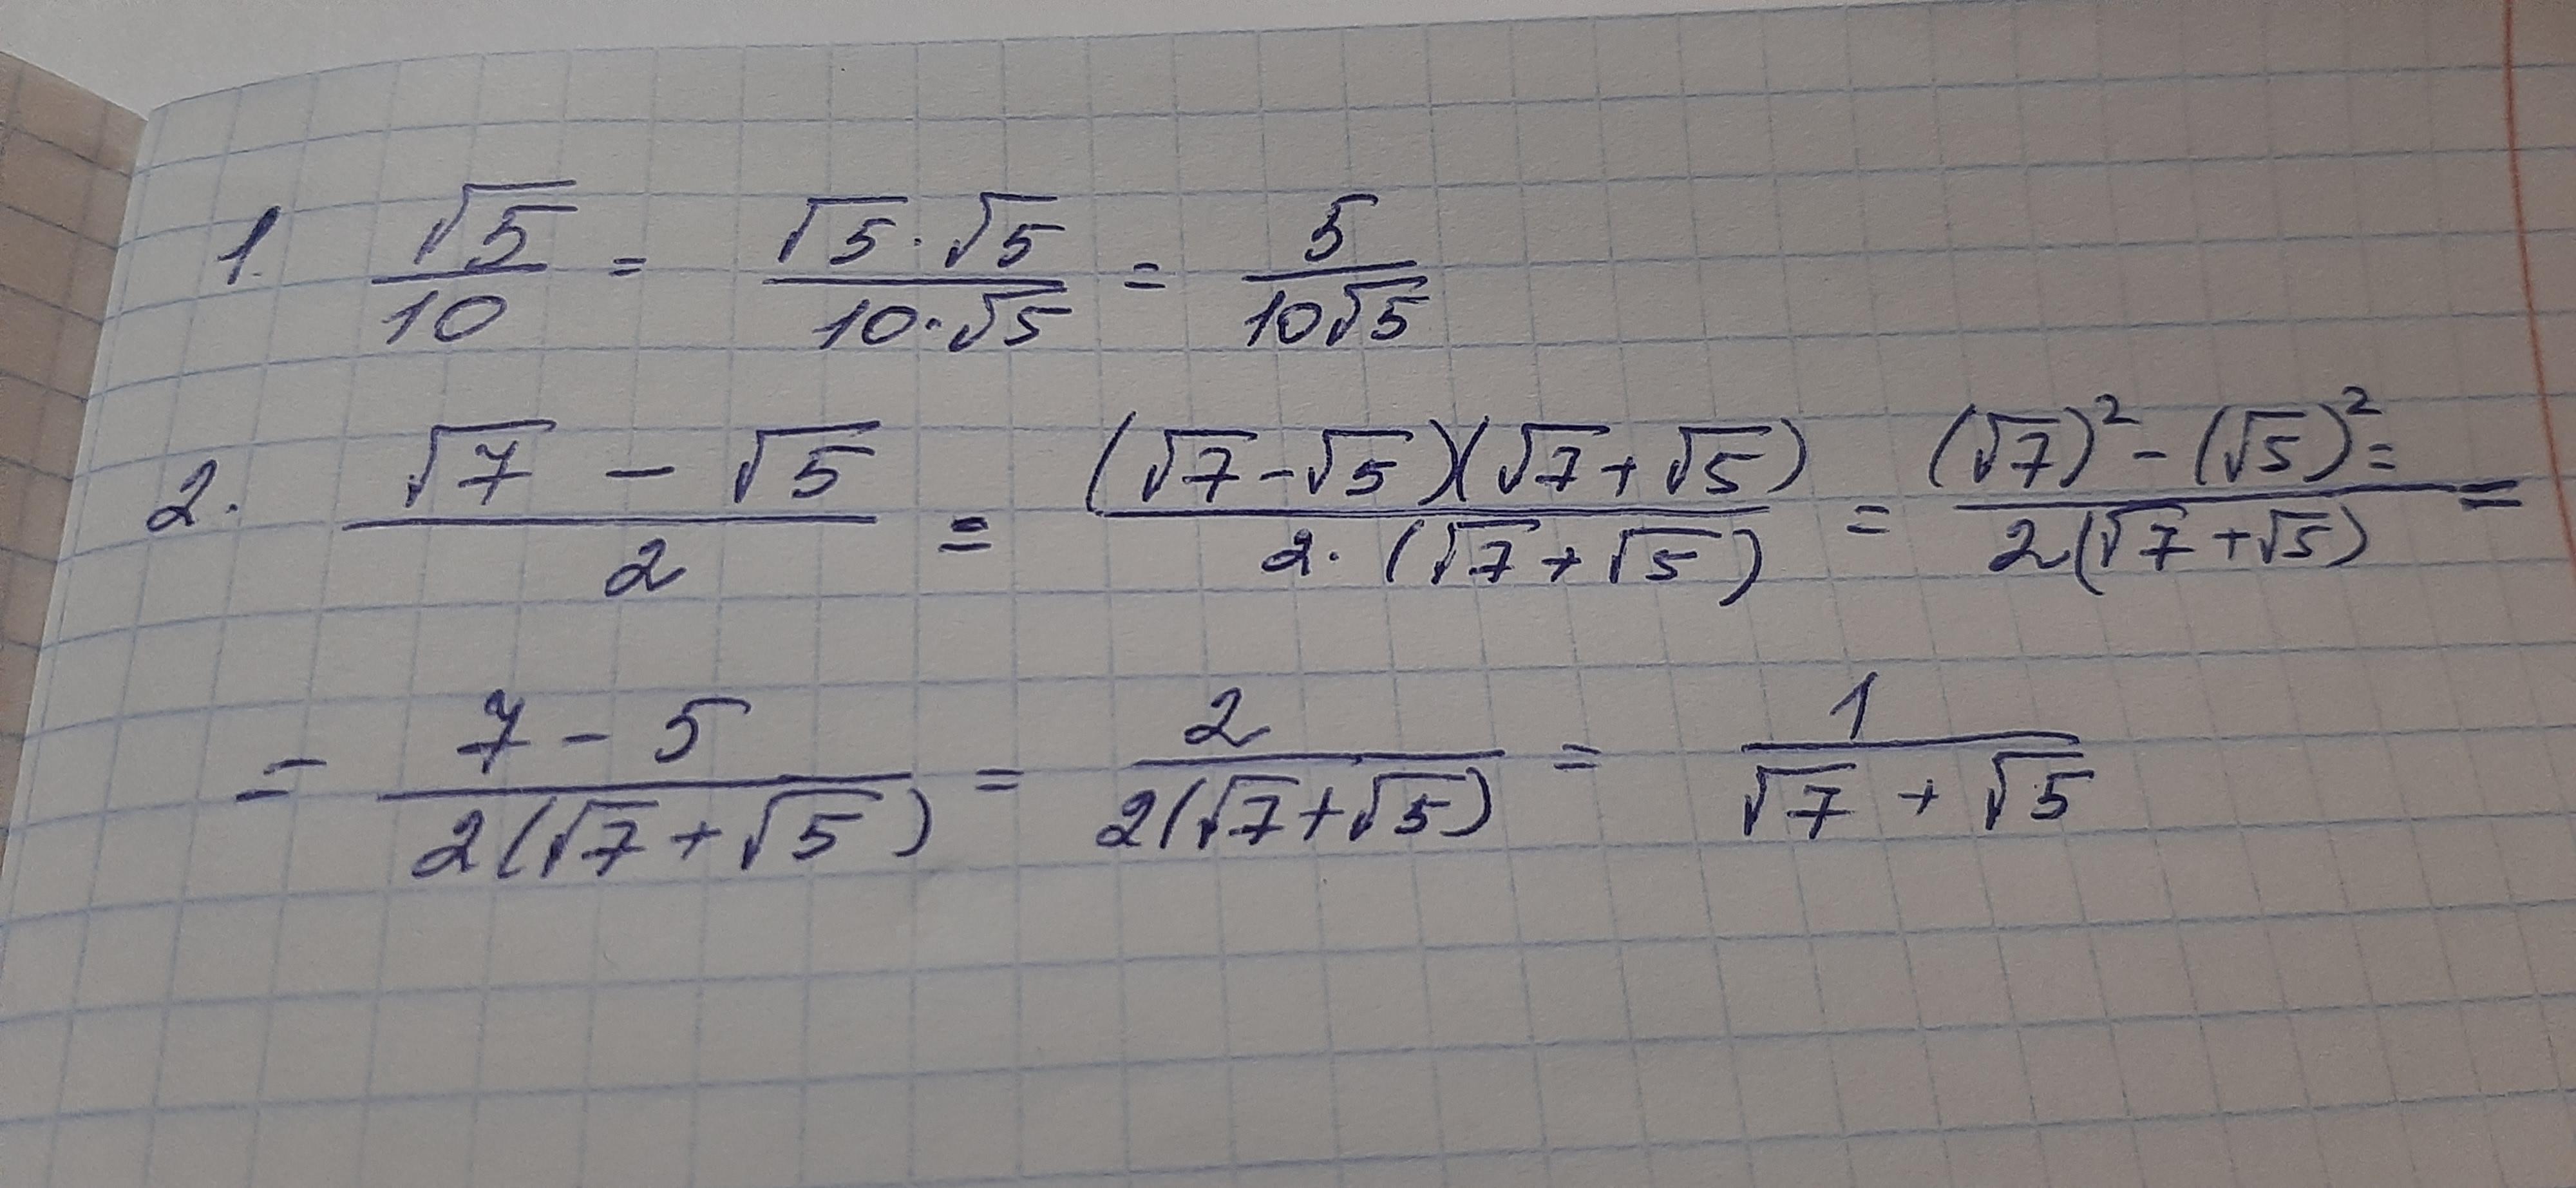 1. √5/10 = √5·√5/10·√5 = 5/10√5
2. √7 - √5/2 = (√7-√5)(√7+√5)/2·(√7+√5) = (√7)²-(√5)²=/2(√7+√5) =
= 7-5/2(√7+√5) = 2/2(√7+√5) = 1/√7+√5